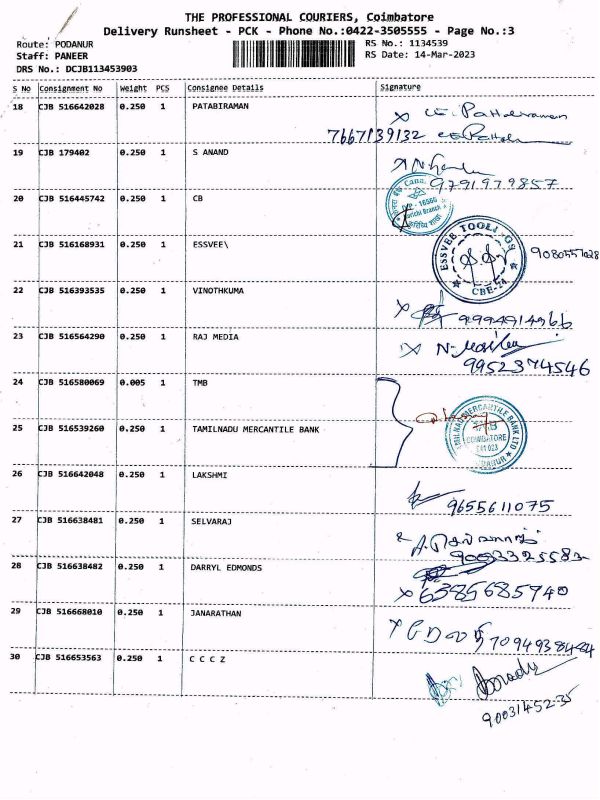 THE PROFESSIONAL COURIERS, Coimbatore
Delivery Runsheet - PCK - Phone No.:0422-3505555 - Page No.:3
Route: PODANUR
RS No.: 1134539
Staff: PANEER
RS Date: 14-Mar-2023
DRS No.: DCJB113453903
S No Consignment No Weight PCS Consignee Details Signature
18 CJB 516642028 0.250 1 PATABIRAMAN
7667139132
19 CJB 179402 0.250 1 S ANAND
9791979857
20 CJB 516445742 0.250 1 CB
21 CJB 516168931 0.250 1 ESSVEE\
ESSVEE
CBE-24
22 CJB 516393535 0.250 1 VINOTHKUMA
9994914966
23 CJB 516564290 0.250 1 RAJ MEDIA
9952374546
24 CJB 516580069 0.005 1 TMB
25 CJB 516539260 0.250 1 TAMILNADU MERCANTILE BANK
COIMBATORE
26 CJB 516642048 0.250 1 LAKSHMI
9655611075
27 CJB 516638481 0.250 1 SELVARAJ
28 CJB 516638482 0.250 1 DARRYL EDMONDS
6385685740
29 CJB 516668010 0.250 1 JANARATHAN
30 CJB 516653563 0.250 1 C C C Z
9003145235